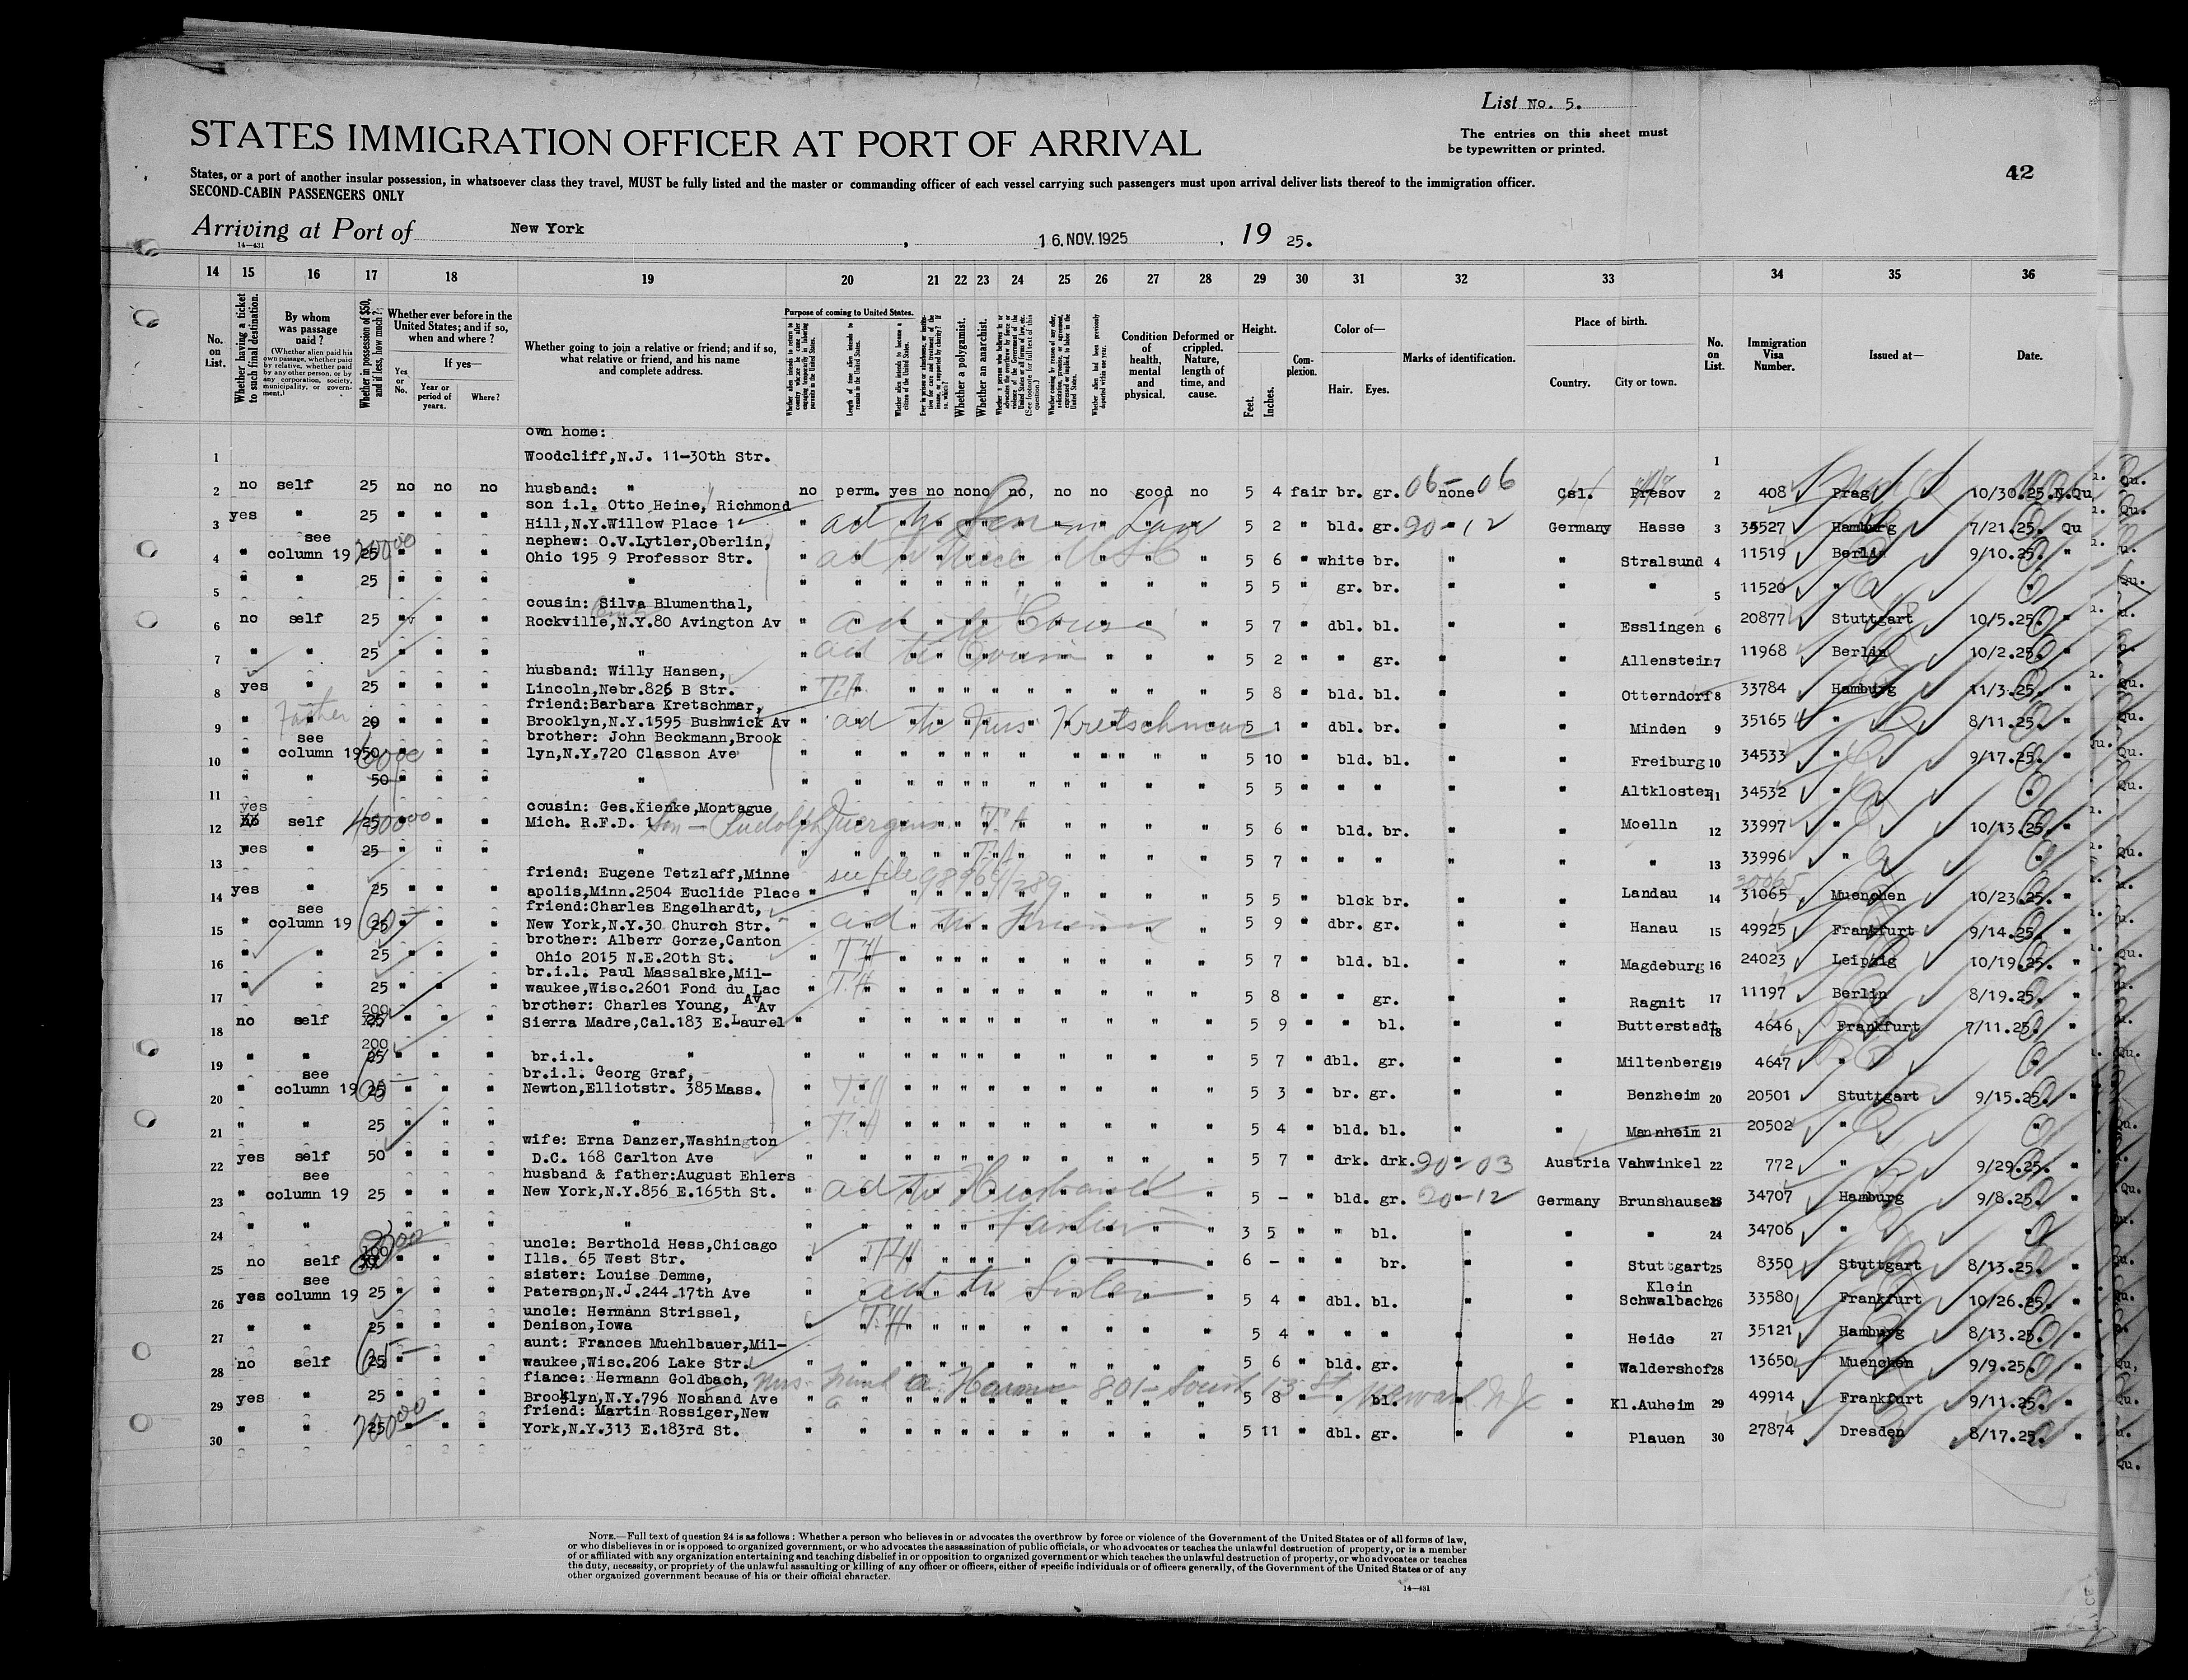 List No. 5.
STATES IMMIGRATION OFFICER AT PORT OF ARRIVAL
The entries on this sheet must
be typewritten or printed.
42
States, or a port of another insular possession, in whatsoever class they travel, MUST be fully listed and the master or commanding officer of each vessel carrying such passengers must upon arrival deliver lists thereof to the immigration officer.
SECOND-CABIN PASSENGERS ONLY
Arriving at Port of New York , 16.NOV.1925 , 19 25.
14—431
14 15 16 17 18 19 20 21 22 23 24 25 26 27 28 29 30 31 32 33 34 35 36
No. on List.
Whether having a ticket to such final destination.
By whom was passage paid?
(Whether alien paid his own passage, whether paid by relative, whether paid by any other person, or by any corporation, society, municipality, or government.)
Whether in possession of $50, and if less, how much?
Whether ever before in the United States; and if so, when and where?
Yes or No.
If yes—
Year or period of years.
Where?
Whether going to join a relative or friend; and if so, what relative or friend, and his name and complete address.
Purpose of coming to United States.
Length of time alien intends to remain in the United States.
Whether a polygamist.
Whether an anarchist.
Condition of health, mental and physical.
Deformed or crippled. Nature, length of time, and cause.
Height.
Feet.
Inches.
Complexion.
Color of—
Hair. Eyes.
Marks of identification.
Place of birth.
Country. City or town.
No. on List.
Immigration Visa Number.
Issued at—
Date.
own home:
1 Woodcliff,N.J. 11-30th Str. 1
2 no self 25 no no no husband: " no perm. yes no no no no, no no good no 5 4 fair br. gr. 06-none 06 Csl. Presov 2 408 Prag 10/30.25.N.Qu
son i.l. Otto Heine, Richmond
3 yes " 25 " " " Hill,N.Y.Willow Place 1 " ad to Son in Law 5 2 " bld. gr. 90-12 Germany Hasse 3 35527 Hamburg 7/21.25. Qu
see nephew: O.V.Lytler,Oberlin,
4 " column 19 25 " " " Ohio 195 9 Professor Str. " 5 6 " white br. " " Stralsund 4 11519 Berlin 9/10.25. "
5 " " 25 " " " " 5 5 gr. br. " " " 5 11520 " "
cousin: Silva Blumenthal,
6 no self 25 " " " Rockville,N.Y.80 Avington Av " ad to Cousin 5 7 " dbl. bl. " " Esslingen 6 20877 Stuttgart 10/5.25. "
7 " " 25 " " " " ad to Cousin 5 2 " " gr. " " Allenstein 7 11968 Berlin 10/2.25. "
husband: Willy Hansen,
8 yes " 25 " " " Lincoln,Nebr.826 B Str. " T.H. 5 8 " bld. bl. " " Otterndorf 8 33784 Hamburg 11/3.25. "
Father friend:Barbara Kretschmar,
9 " " 20 " " " Brooklyn,N.Y.1595 Bushwick Av " ad to Kretschmar 5 1 " dbl. br. " " Minden 9 35165 " 8/11.25. "
see brother: John Beckmann,Brook
10 " column 19 50 " " " lyn,N.Y.720 Classon Ave " 5 10 " bld. bl. " " Freiburg 10 34533 " 9/17.25. "
11 " " 50 " " " " 5 5 " " " " " Altkloster 11 34532 " "
yes cousin: Ges.Kienke,Montague
12 no self 25 " " " Mich. R.F.D. 1 Son - Rudolph Juergens T.H 5 6 " bld. br. " " Moelln 12 33997 " 10/13.25. "
13 yes " 25 " " " " T.H 5 7 " " " " " " 13 33996 " "
friend: Eugene Tetzlaff,Minne see file 98969/289
14 yes " 25 " " " apolis,Minn.2504 Euclide Place " 5 5 " blck br. " " Landau 14 31065 Muenchen 10/23.25. "
see friend:Charles Engelhardt,
15 " column 19 25 " " " New York,N.Y.30 Church Str. " ad to Friend 5 9 " dbr. gr. " " Hanau 15 49925 Frankfurt 9/14.25. "
brother: Alberr Gorze,Canton
16 " " 25 " " " Ohio 2015 N.E.20th St. " T.H 5 7 " bld. bl. " " Magdeburg 16 24023 Leipzig 10/19.25. "
br.i.l. Paul Massalske,Mil-
17 " " 25 " " " waukee,Wisc.2601 Fond du Lac Av " T.H 5 8 " " gr. " " Ragnit 17 11197 Berlin 8/19.25. "
200 brother: Charles Young, Av
18 no self 25 " " " Sierra Madre,Cal.183 E.Laurel " 5 9 " " bl. " " Butterstadt 18 4646 Frankfurt 7/11.25. "
200
19 " " 25 " " " br.i.l. " " 5 7 " dbl. gr. " " Miltenberg 19 4647 " "
see br.i.l. Georg Graf,
20 " column 19 25 " " " Newton,Elliotstr. 385 Mass. " T.H 5 3 " br. gr. " " Benzheim 20 20501 Stuttgart 9/15.25. "
21 " " 25 " " " " T.H 5 4 " bld. bl. " " Mannheim 21 20502 " "
wife: Erna Danzer,Washington
22 yes self 50 " " " D.C. 168 Carlton Ave " 5 7 " drk. drk. 90-03 Austria Vahwinkel 22 772 " 9/29.25. "
see husband & father:August Ehlers
23 " column 19 25 " " " New York,N.Y.856 E.165th St. " ad to Husband 5 - " bld. gr. 90-12 Germany Brunshausen 23 34707 Hamburg 9/8.25. "
24 " " " " " " Father 3 5 " " bl. " " " 24 34706 " "
uncle: Berthold Hess,Chicago
25 no self 100 " " " Ills. 65 West Str. " T.H 6 - " " br. " " Stuttgart 25 8350 Stuttgart 8/13.25. "
see sister: Louise Demme, Klein
26 yes column 19 25 " " " Paterson,N.J.244 17th Ave " ad to Sister 5 4 " dbl. bl. " " Schwalbach 26 33580 Frankfurt 10/26.25. "
uncle: Hermann Strissel,
27 " " 25 " " " Denison,Iowa " T.H 5 4 " " " " " Heide 27 35121 Hamburg 8/13.25. "
aunt: Frances Muehlbauer,Mil-
28 no self 25 " " " waukee,Wisc.206 Lake Str. " 5 6 " bld. gr. " " Waldershof 28 13650 Muenchen 9/9.25. "
fiance: Hermann Goldbach, Mrs. 801- South 13 St Newark N.J.
29 yes " 25 " " " Brooklyn,N.Y.796 Noshand Ave " 5 8 " " bl. " Kl.Auheim 29 49914 Frankfurt 9/11.25. "
friend: Martin Rossiger,New
30 " " 25 " " " York,N.Y.313 E.183rd St. " 5 11 " dbl. gr. " " Plauen 30 27874 Dresden 8/17.25. "
NOTE.—Full text of question 24 is as follows: Whether a person who believes in or advocates the overthrow by force or violence of the Government of the United States or of all forms of law,
or who disbelieves in or is opposed to organized government, or who advocates the assassination of public officials, or who advocates or teaches the unlawful destruction of property, or is a member
of or affiliated with any organization entertaining and teaching disbelief in or opposition to organized government or which teaches the unlawful destruction of property, or who advocates or teaches
the duty, necessity, or propriety of the unlawful assaulting or killing of any officer or officers, either of specific individuals or of officers generally, of the Government of the United States or of any
other organized government because of his or their official character.
14—431